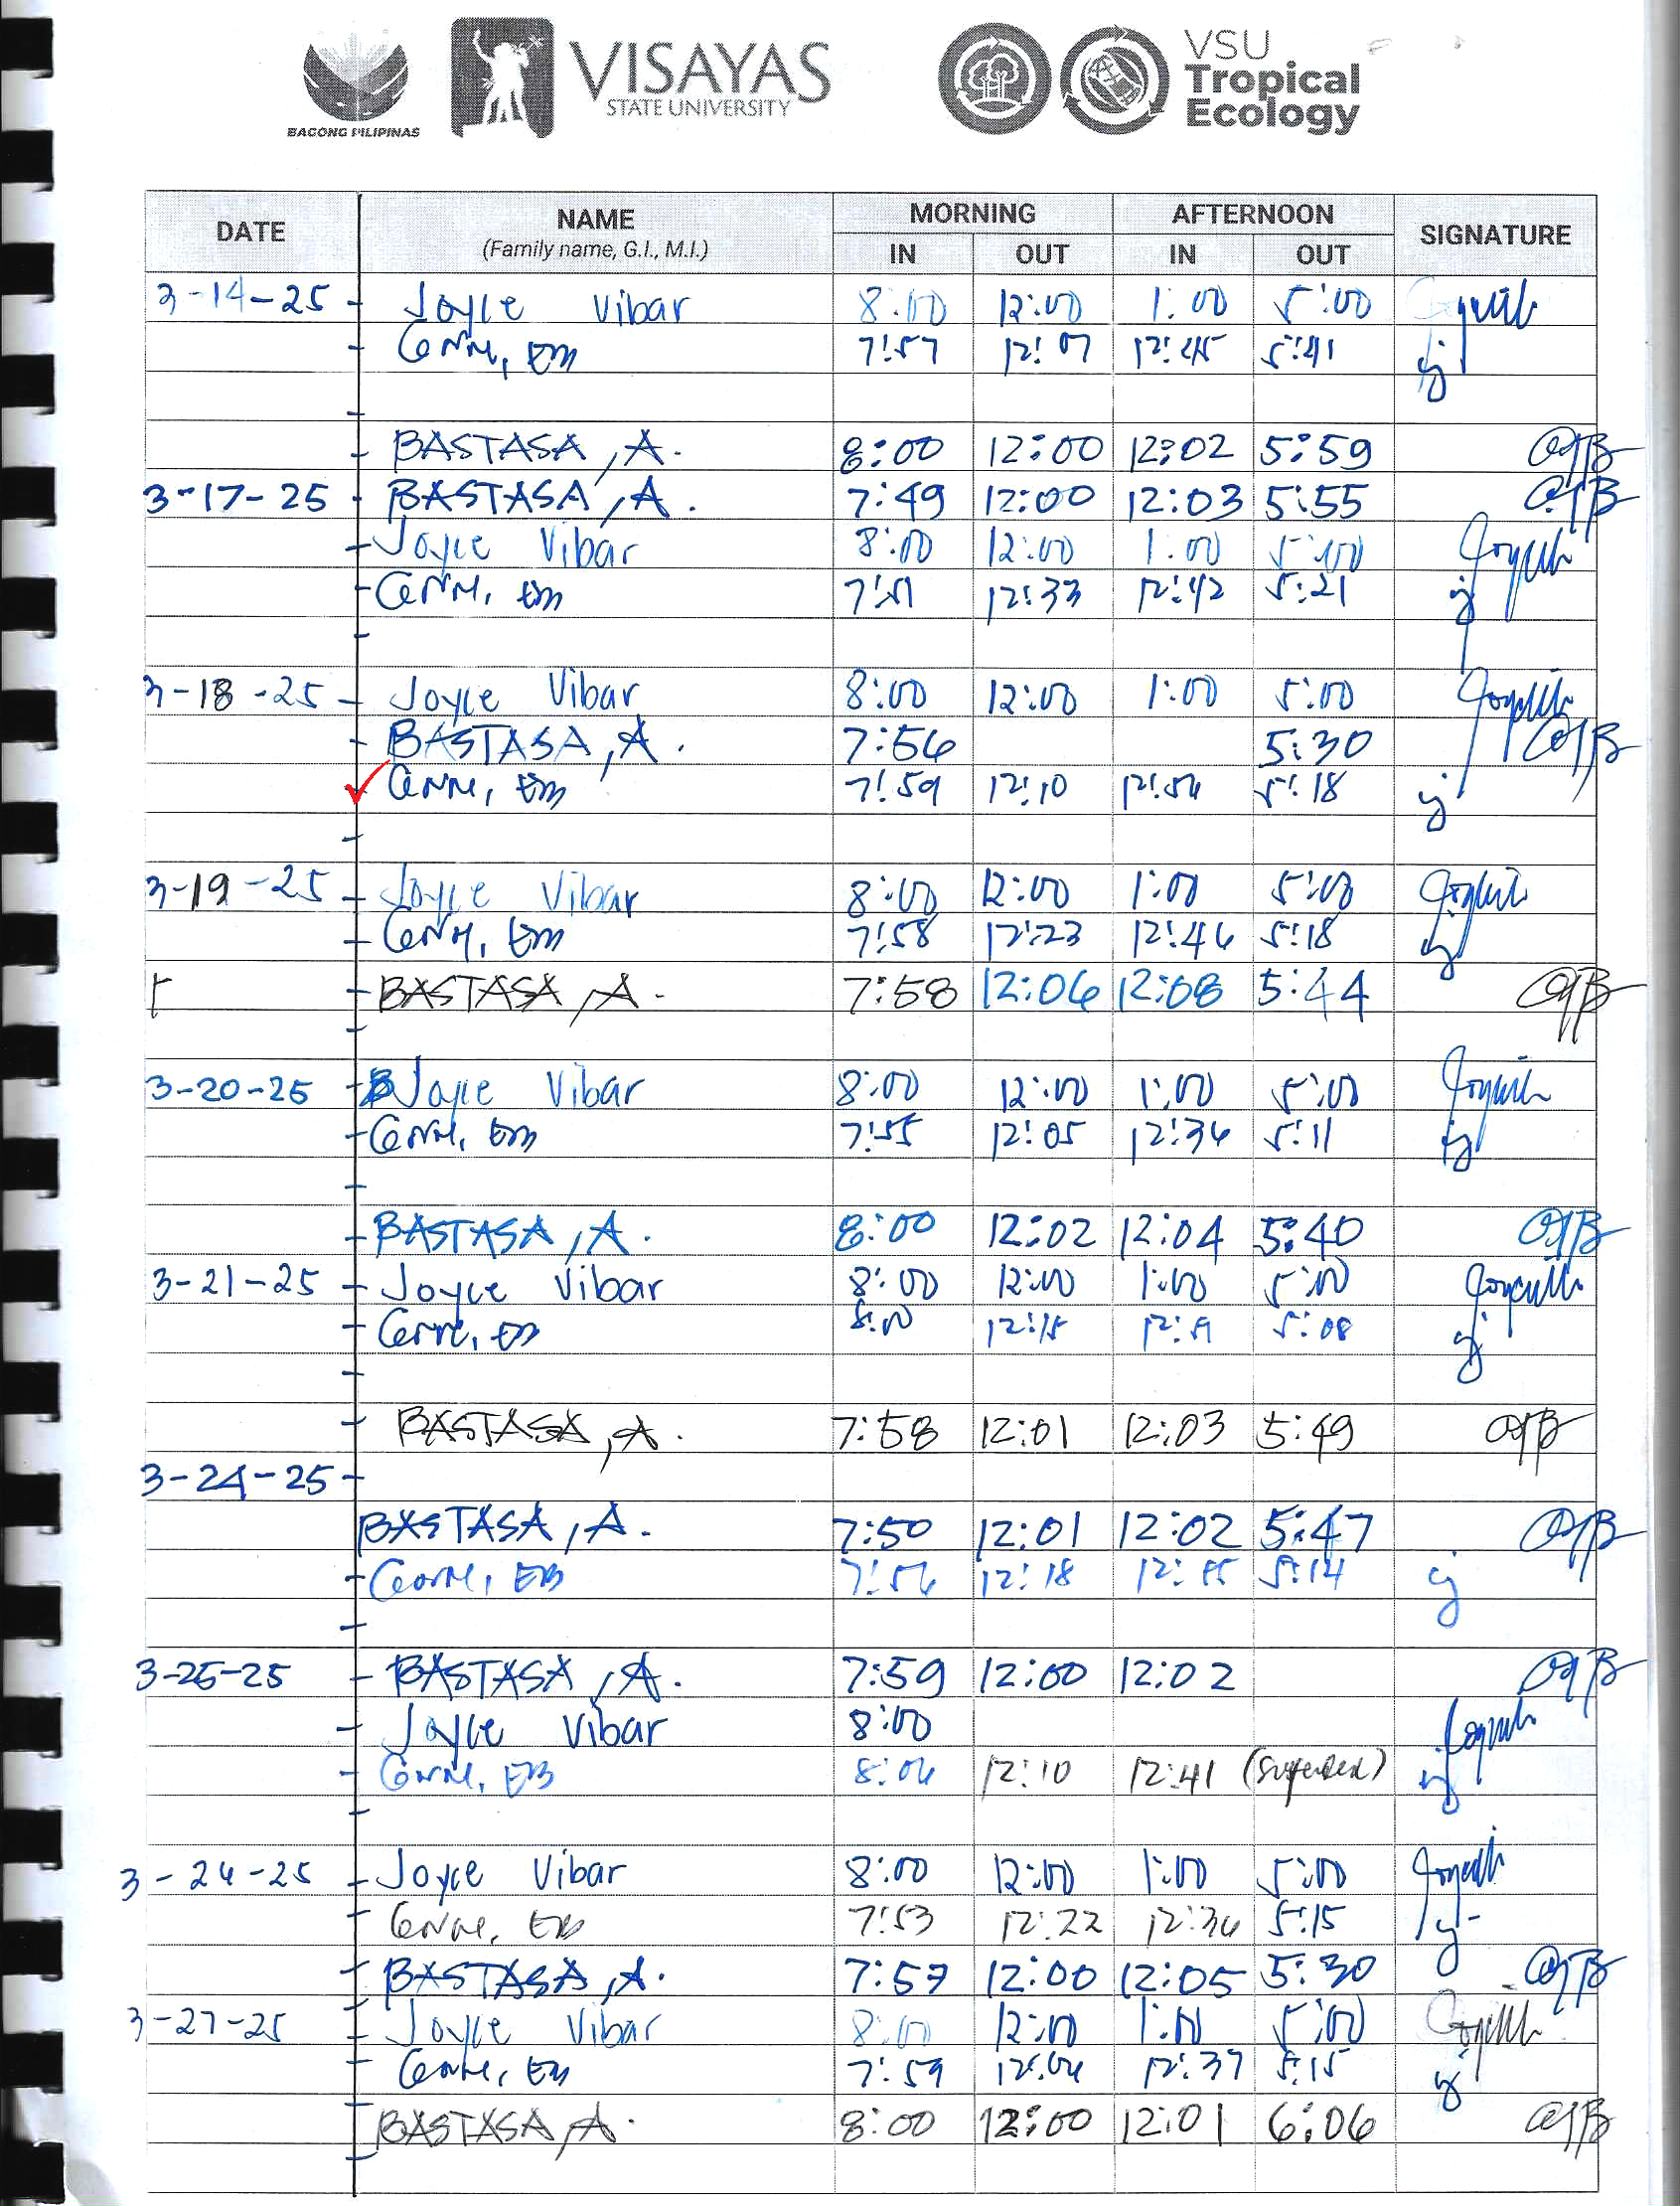 BAGONG PILIPINAS
VISAYAS
STATE UNIVERSITY
VSU
Tropical
Ecology
DATE NAME (Family name, G.I., M.I.) MORNING AFTERNOON SIGNATURE
IN OUT IN OUT
3-14-25 Joyce Vibar 8:00 12:00 1:00 5:00
7:57 12:07 12:45 5:41
BASTASA, A. 8:00 12:00 12:02 5:59
3-17-25 BASTASA, A. 7:49 12:00 12:03 5:55
Joyce Vibar 8:00 12:00 1:00 5:00
7:51 12:33 12:42 5:21
3-18-25 Joyce Vibar 8:00 12:00 1:00 5:00
BASTASA, A. 7:56 5:30
7:59 12:10 12:56 5:18
3-19-25 Joyce Vibar 8:00 12:00 1:00 5:00
7:58 12:23 12:46 5:18
BASTASA, A. 7:58 12:06 12:08 5:44
3-20-25 Joyce Vibar 8:00 12:00 1:00 5:00
7:55 12:05 12:36 5:11
BASTASA, A. 8:00 12:02 12:04 5:40
3-21-25 Joyce Vibar 8:00 12:00 1:00 5:00
8:00 12:15 12:51 5:08
BASTASA, A. 7:58 12:01 12:03 5:49
3-24-25
BASTASA, A. 7:50 12:01 12:02 5:47
7:56 12:18 12:55 5:14
3-25-25 BASTASA, A. 7:59 12:00 12:02
Joyce Vibar 8:00
8:06 12:10 12:41 (suspended)
3-26-25 Joyce Vibar 8:00 12:00 1:00 5:00
7:53 12:22 12:36 5:15
BASTASA, A. 7:57 12:00 12:05 5:30
3-27-25 Joyce Vibar 8:00 12:00 1:00 5:00
7:59 12:06 12:37 5:15
BASTASA, A. 8:00 12:00 12:01 6:06